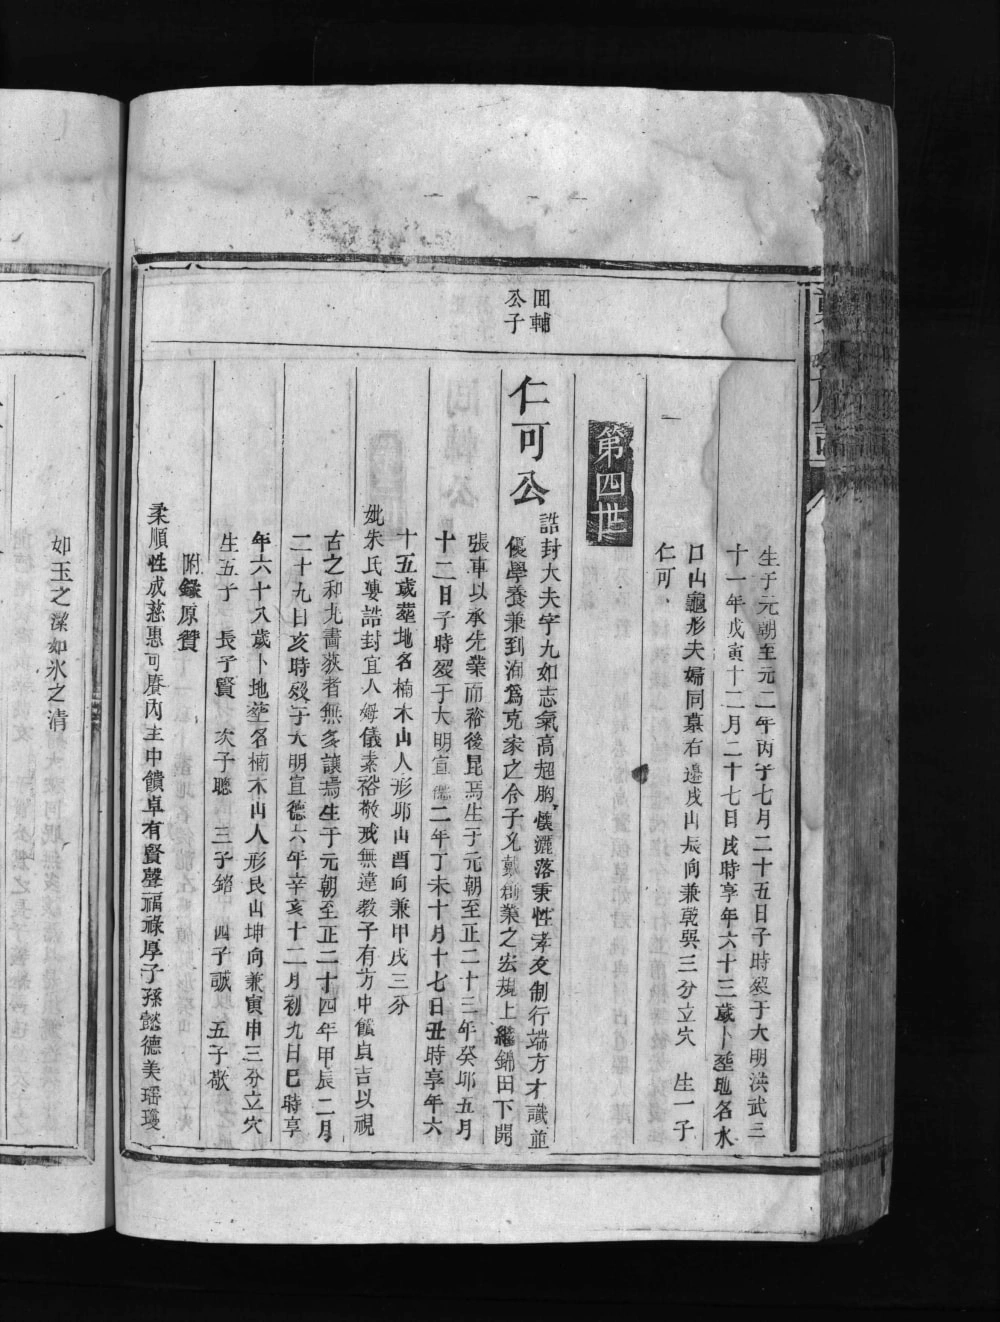 生于元朝至元二年丙子七月二十五日子時歿于大明洪武三
十一年戊寅十二月二十七日戌時享年六十三歲卜塟地名水
口山龜形夫婦同墓右邊戌山辰向兼乾巽三分立穴　生一子
仁可
第四世
囬輔
公子
仁可公
誥封大夫字九如志氣高超胸懷灑落秉性孝友制行端方才識並
優學養兼到洵爲克家之令子允戴創業之宏規上繼錦田下開
張車以承先業而裕後昆焉生于元朝至正二十三年癸卯五月
十二日子時歿于大明宣德二年丁未十月十七日丑時享年六
十五歲塟地名楠木山人形卯山酉向兼甲戌三分
妣朱氏寠誥封宜人姆儀素裕敬戒無違教子有方中饋貞吉以視
古之和丸畫荻者無多讓焉生于元朝至正二十四年甲辰二月
二十九日亥時歿于大明宣德六年辛亥十二月初九日巳時享
年六十八歲卜地塟名楠木山人形艮山坤向兼寅申三分立穴
生五子　長子賢　次子聰　三子銘　四子誠　五子敬
附錄原贊
柔順性成慈惠可賡內主中饋卓有賢聲福祿厚子孫懿德美瑶瓊
如玉之潔如氷之清